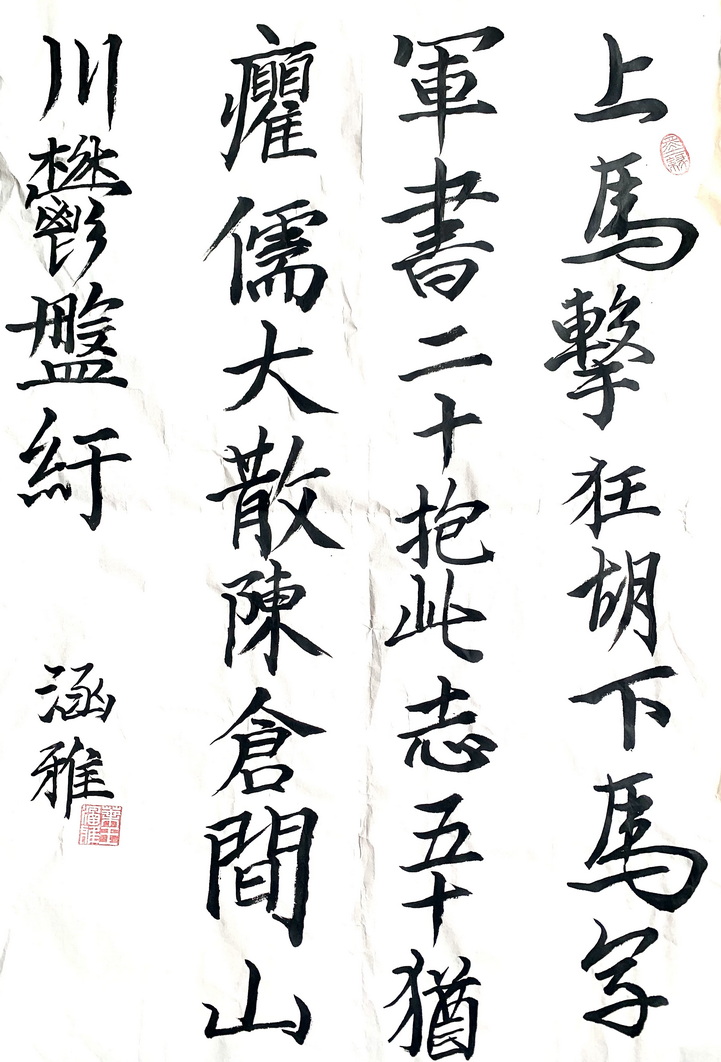 上馬擊狂胡下馬
軍書二十抱此志五十猶
癯儒大散陳倉間山
川鬱盤紆
涵雅